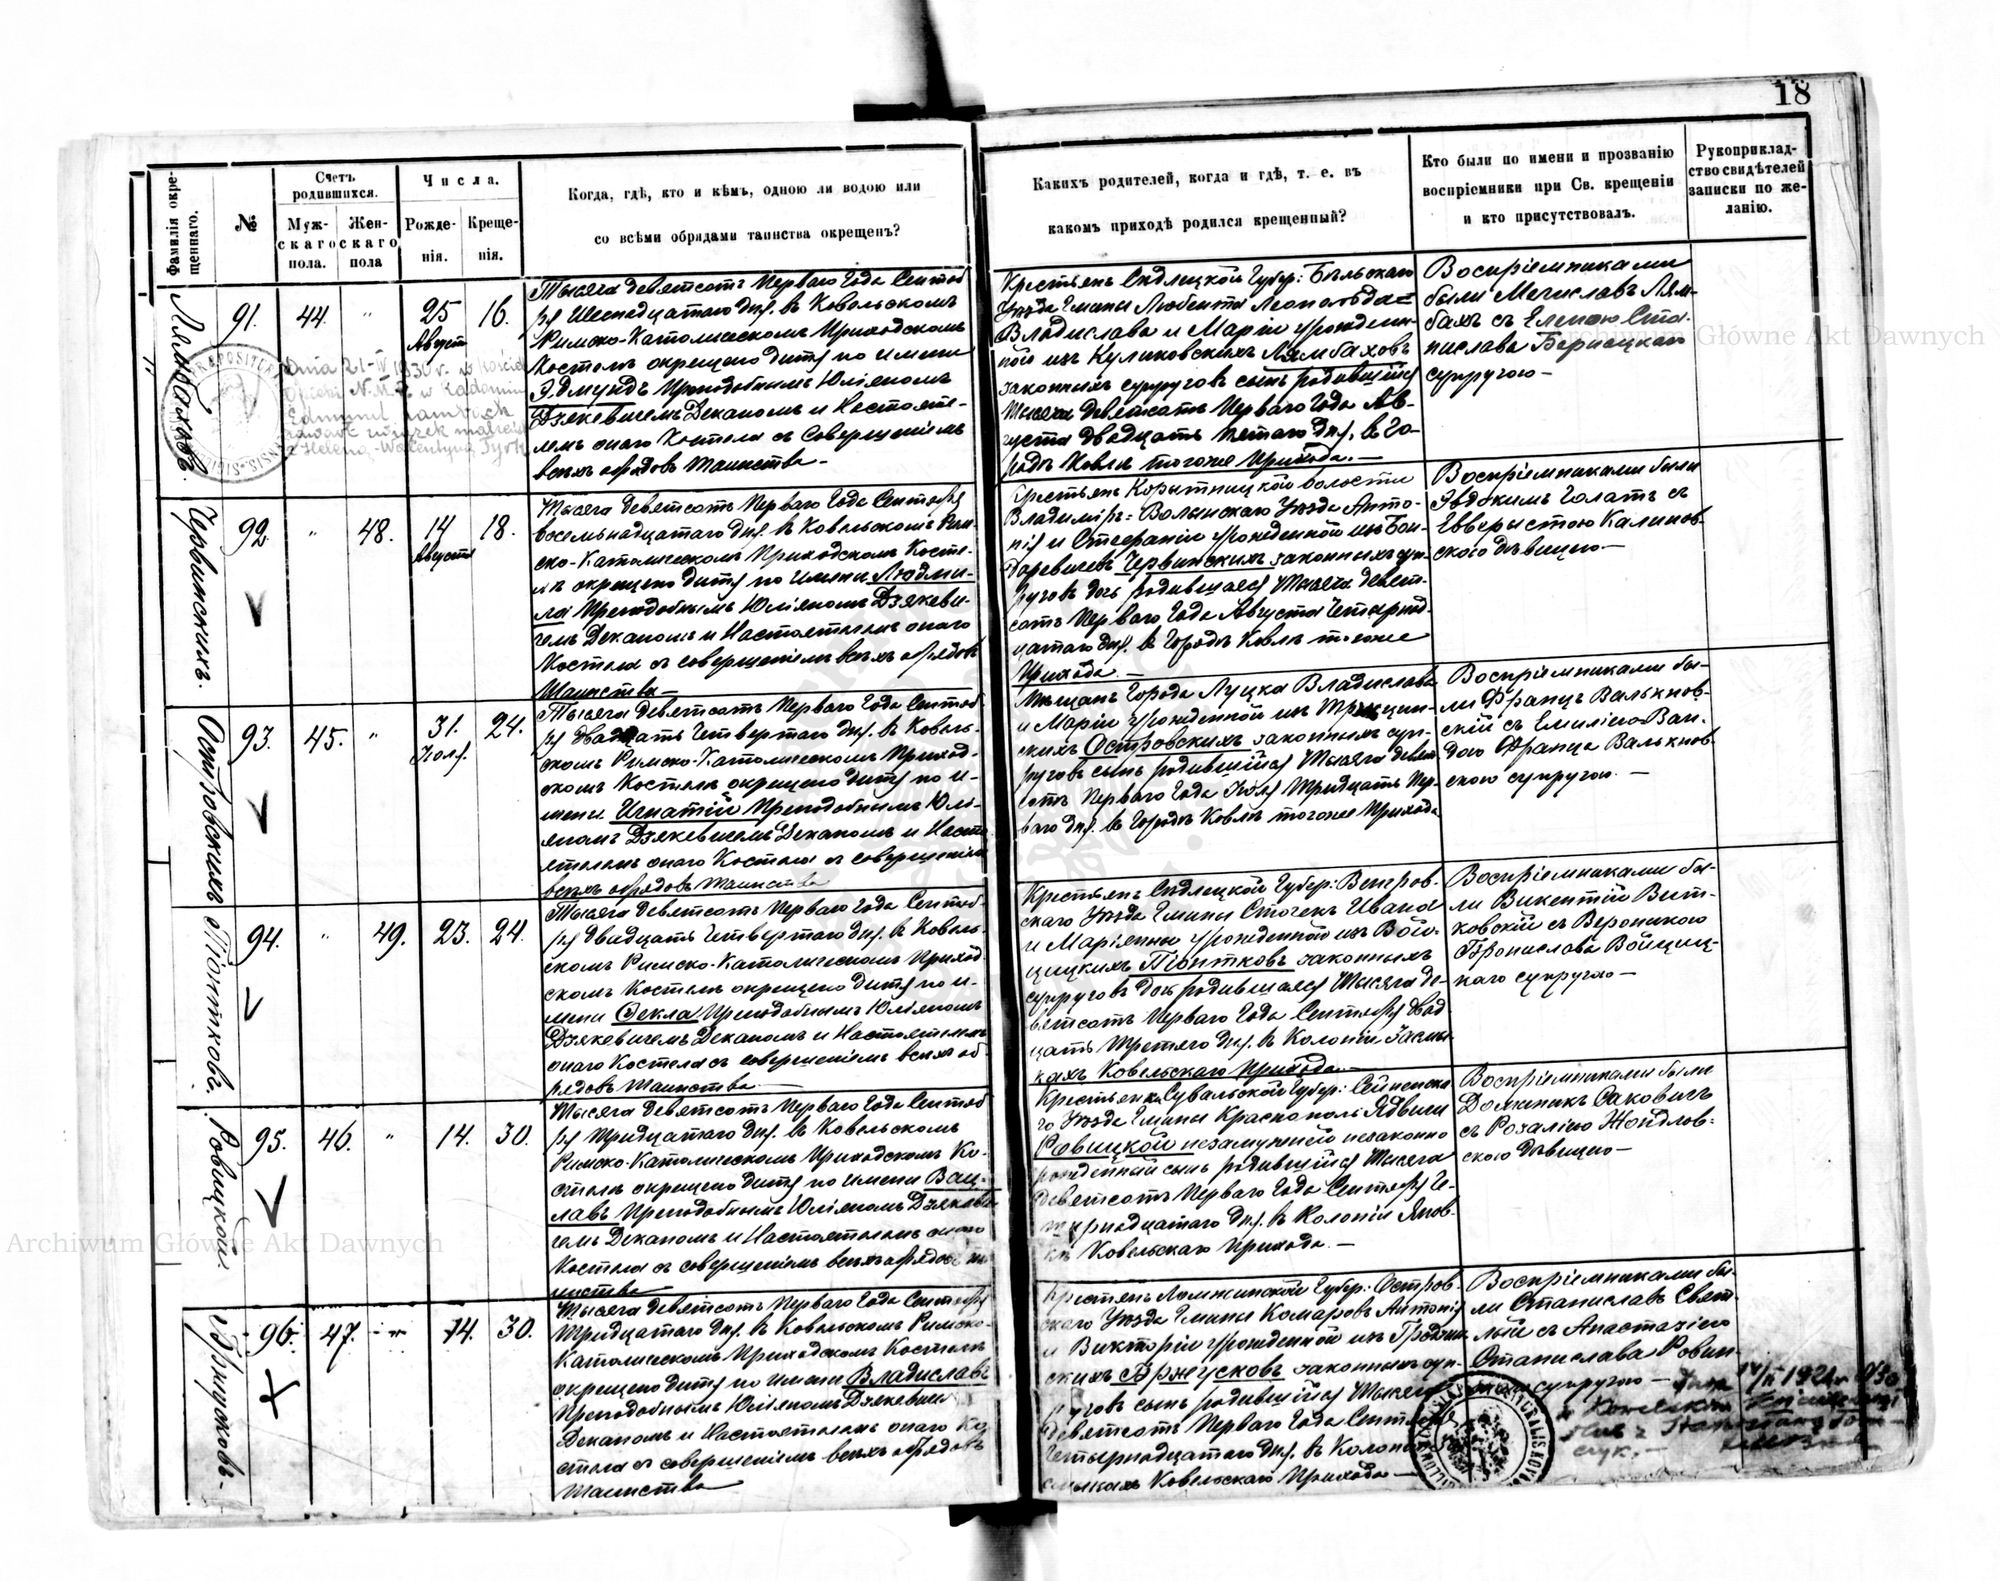 18
Фамилія окре-
щеннаго.
№
Счетъ
родившихся.
Муж-
скаго
пола.
Жен-
скаго
пола
Числа.
Рожде-
нія.
Креще-
нія.
Когда, гдѣ, кто и кѣмъ, одною ли водою или
со всѣми обрядами таинства окрещенъ?
Какихъ родителей, когда и гдѣ, т. е. въ
какомъ приходѣ родился крещенный?
Кто были по имени и прозванію
воспріемники при Св. крещеніи
и кто присутствовалъ.
Рукоприклад-
ство свидѣтелей
записки по же-
ланію.
Лямбаховъ.
91.
44.
"
25
Август
16.
Тысяча девятсотъ Перваго Года Сентяб
ря Шеснадцатаго дня. въ Ковельскомъ
Римско-Католическомъ Приходскомъ
Костелѣ окрещено дитя по имени
Эдмундъ Преподобнымъ Юліяномъ
Дзякевичемъ Деканомъ и Настояте-
лемъ онаго Костела съ совершеніемъ
всѣхъ обрядовъ Таинства-
Крестьянъ Сѣдлецкой Губер: Бѣльскаго
Уѣзда Гмины Любенка Леопольда=
Владислава и Маріи урожден-
ной изъ Куликовскихъ Лямбаховъ
законныхъ супруговъ сынъ родившійся
Тысяча девятсотъ Перваго Года Ав-
густа двадцать пятаго дня. въ Го-
родѣ Ковлѣ тогоже Прихода.-
Воспріемниками
были Мечиславъ Лям-
бахъ съ Еленою Ста-
нислава Бернацкаго
супругою-
Dnia 21-IV 1930 r. w kościele
Edmund Lambach
zawarł związek małżeń
z Heleną-Walentyną
Червинскихъ.
92.
"
48.
14
Августа
18.
Тысяча девятсотъ Перваго Года Сентября
восемьнадцатаго дня. въ Ковельскомъ Рим-
ско-Католическомъ Приходскомъ Косте-
лѣ окрещено дитя по имени Людми-
ла Преподобнымъ Юліяномъ Дзякеви-
чемъ Деканомъ и Настоятелемъ онаго
Костела съ совершеніемъ всѣхъ обрядовъ
Таинства-
Крестьянъ Корытницкой волости
Владиміръ=Волынскаго Уѣзда Анто-
нія и Стефаніи урожденной изъ Бон-
даревичевъ Червинскихъ законныхъ суп-
руговъ дочь родившаяся Тысяча девят-
сотъ Перваго Года Августа Четырнад-
цатаго дня. въ Городѣ Ковлѣ тогоже
Прихода.-
Воспріемниками были
Евдокимъ Голатъ съ
Евверыстою Калинов-
скою дѣвицею-
Островскихъ
93.
45.
"
31.
Іюля.
24.
Тысяча девятсотъ Перваго Года Сентяб
ря двадцать Четвертаго дня. въ Ковель-
скомъ Римско-Католическомъ Приход-
скомъ Костелѣ окрещено дитя по и-
мени Игнатій Преподобнымъ Юлі-
яномъ Дзякевичемъ Деканомъ и Насто
ятелемъ онаго Костела съ совершеніемъ
всѣхъ обрядовъ Таинства
Мѣщанъ Города Луцка Владислава
и Маріи урожденной изъ
скихъ Островскихъ законныхъ суп-
руговъ сынъ родившійся Тысяча девят
сотъ Перваго Года Іюля Тридцать Пер-
ваго дня. въ Городѣ Ковлѣ тогоже Прихода
Воспріемниками бы-
ли Францъ Валькнов-
скій съ Емиліею Ван-
дою Франца Валькнов-
скою супругою.-
Піонтковъ.
94.
"
49.
23.
24.
Тысяча девятсотъ Перваго Года Сентяб-
ря двадцать Четвертаго дня. въ Ковель-
скомъ Римско-Католическомъ Приход
скомъ Костелѣ окрещено дитя по и-
мени Ѳекла Преподобнымъ Юліяномъ
Дзякевичемъ Деканомъ и Настоятелемъ
онаго Костела съ совершеніемъ всѣхъ об-
рядовъ Таинства-
Крестьянъ Сѣдлецкой Губер: Венгров-
скаго Уѣзда Гмины Сточекъ Ивана
и Маріянны урожденной изъ Вой-
цицкихъ Піонтковъ законныхъ
супруговъ дочь родившаяся Тысяча де-
вятсотъ Перваго Года Сентября двад-
цать третяго дня. въ Колоніи Засмы-
кахъ Ковельскаго Прихода.-
Воспріемниками бы-
ли Викентій Вит-
ковскій съ Вероникою
Бронислава Войциц-
каго супругою-
Ровицкой
95.
46.
"
14.
30.
Тысяча девятсотъ Перваго Года Сентяб
ря Тридцатаго дня. въ Ковельскомъ
Римско-Католическомъ Приходскомъ Ко-
стелѣ окрещено дитя по имени Вац-
лавъ Преподобнымъ Юліяномъ Дзякеви
чемъ Деканомъ и Настоятелемъ онаго
Костела съ совершеніемъ всѣхъ обрядовъ та
инства
Крестьянки Сувальской Губер: Сейненска
го Уѣзда Гмины Краснополь Ядвиги
Ровицкой незамужней незаконно
рожденный сынъ родившійся Тысяча
девятсотъ Перваго Года Сентября Че-
тырнадцатаго дня. въ Колоніи Янов-
кѣ Ковельскаго Прихода.-
Воспріемниками были
Доминикъ Саковичъ
съ Розаліею Жондлов-
скою дѣвицею-
Вржусковъ.
96.
47.
"
14.
30.
Тысяча девятсотъ Перваго Года Сентября
Тридцатаго дня. въ Ковельскомъ Римско-
Католическомъ Приходскомъ Костелѣ
окрещено дитя по имени Владиславъ
Преподобнымъ Юліяномъ Дзякевичемъ
Деканомъ и Настоятелемъ онаго Ко
стела съ совершеніемъ всѣхъ обрядовъ
Таинства
Крестянъ Ломжинской Губер: Остров-
скаго Уѣзда Гмины Комаровъ Антонія
и Викторіи урожденной изъ
скихъ Вржусковъ законныхъ суп-
руговъ сынъ родившійся Тысяча
девятсотъ Перваго Года Сентября
Четырнадцатаго дня. въ Колоніи За-
смыкахъ Ковельскаго Прихода-
Воспріемниками бы-
ли Станиславъ Свят-
лый съ Анастазіею
Станислава Ровин-
супругою-
Archiwum Główne Akt Dawnych
Archiwum Główne Akt Dawnych